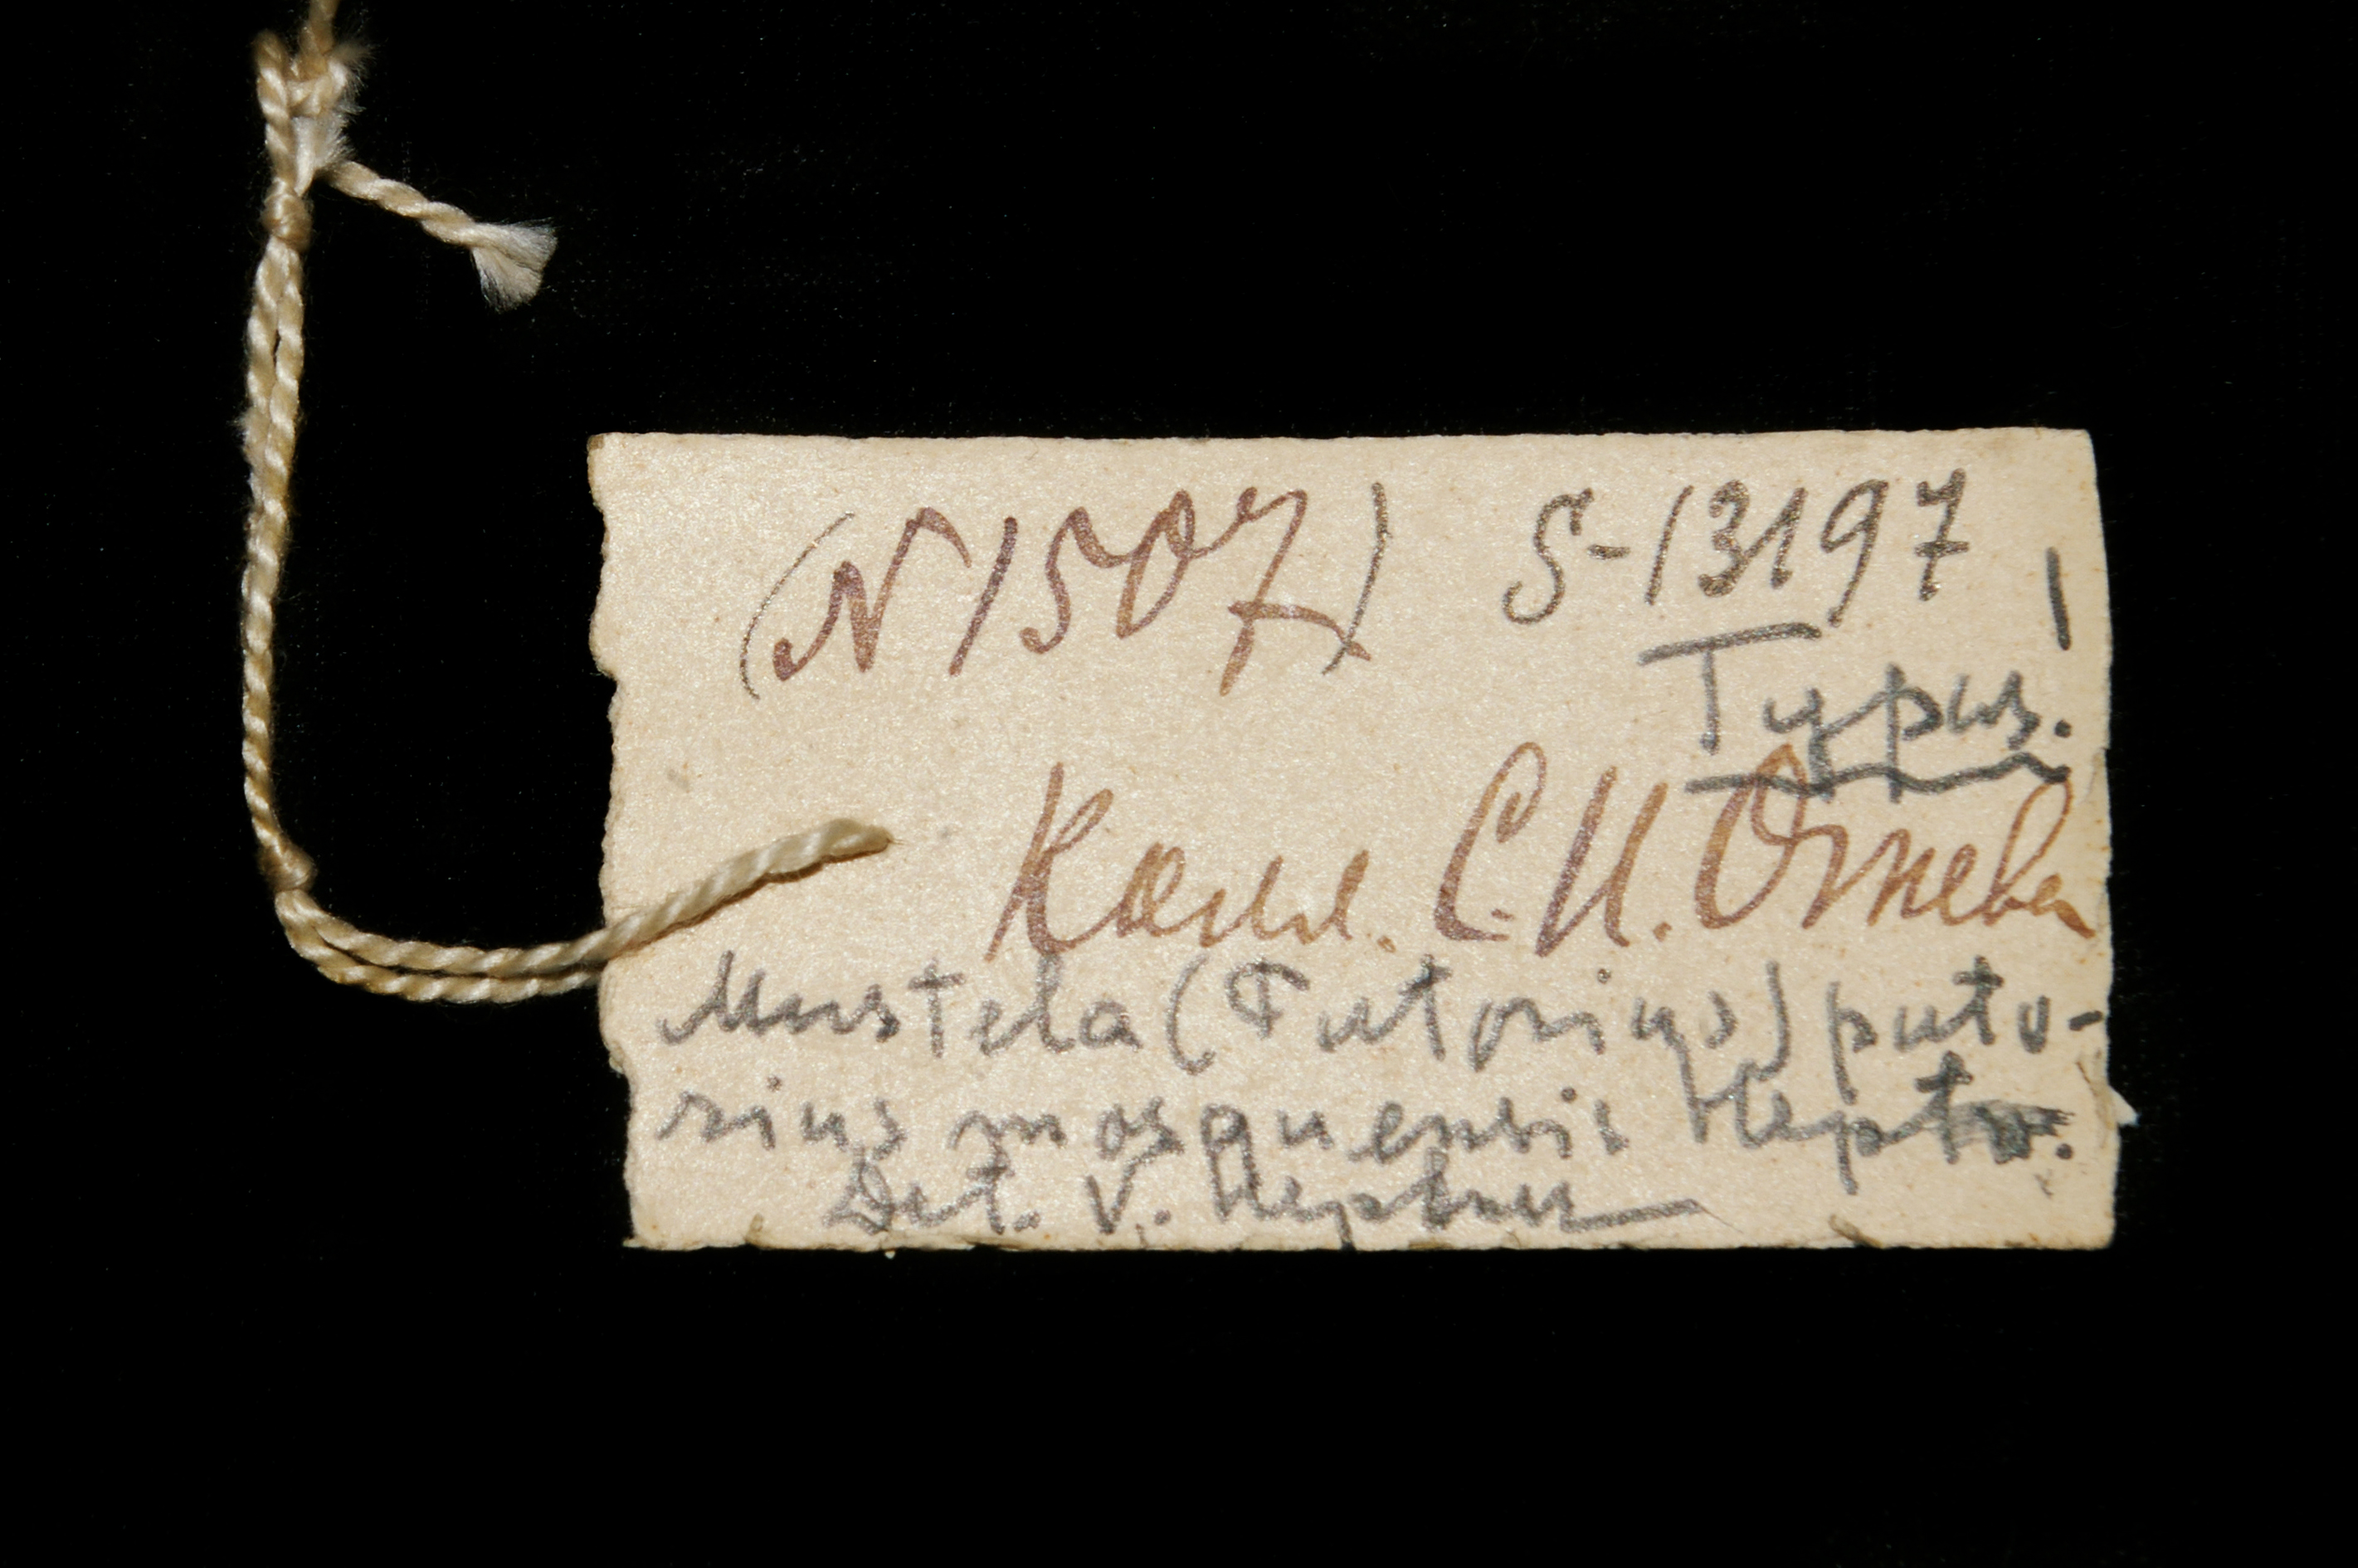 (N 1507) S-13197
Typus.
Колл. С. И. Огнева
Mustela (Putorius) puto-
rius mosquensis Heptn.
Det. V. Heptner